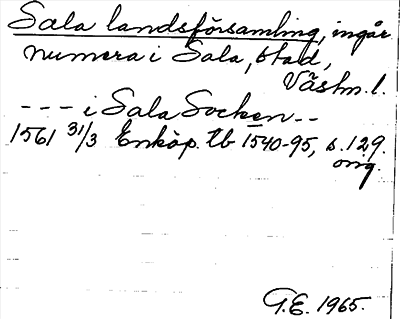 Sala landsförsamling, ingår
numera i Sala, stad,
Västm. l.
- - - i Sala Socken - -
1561 31/3 Enköp. tb 1540-95, s. 129.
orig.
G.E. 1965.